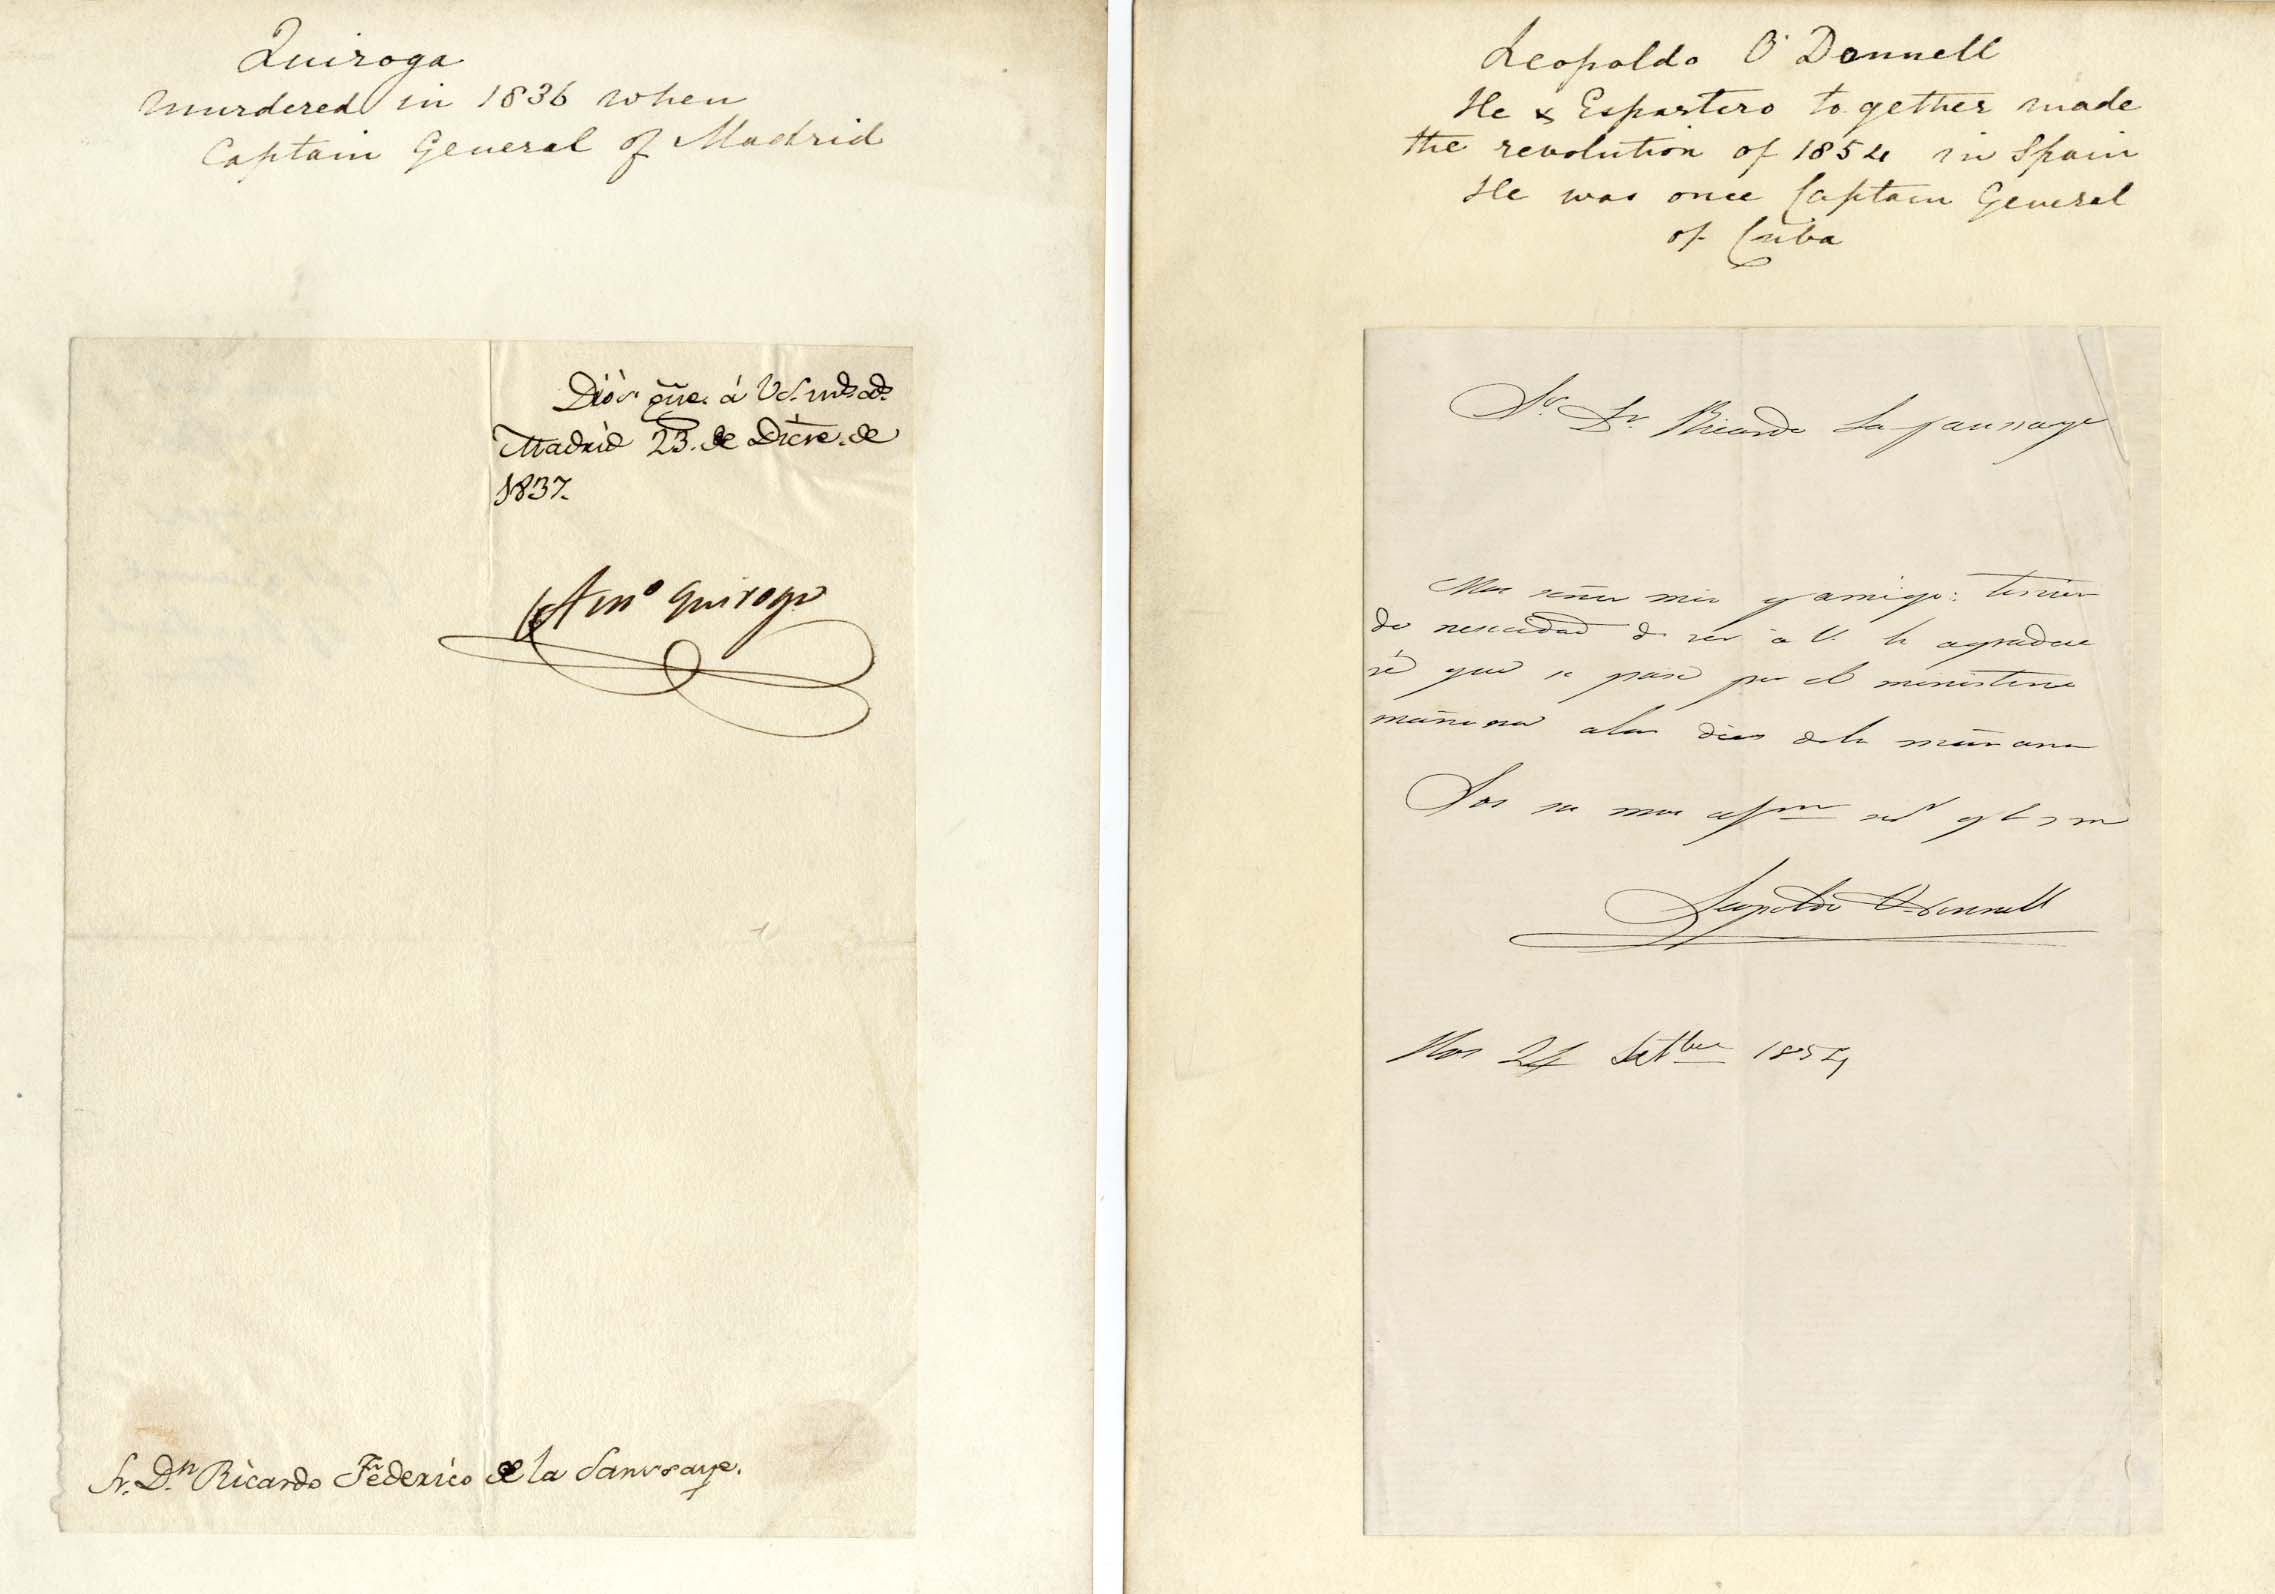 Quiroga
Murdered in 1836 when
Captain General of Madrid
Dios gũe. á Vd. ms. as.
Madrid 23. de Dicre. de
1837.
Anto. Quiroga
Sr. Dn. Ricardo Federico de la Saussaye.
Leopoldo O'Donnell
He & Espartero together made
the revolution of 1854 in Spain
He was once Captain General
of Cuba
Sr. Dn. Ricardo La Saussaye
Muy señor mio y amigo: tenien
do necesidad de ver a V. le agradece
ré que se pase por el ministerio
mañana a las diez de la mañana
Soy su mas afmo
Leopoldo O'Donnell
Hoy 24 Setbre 1854